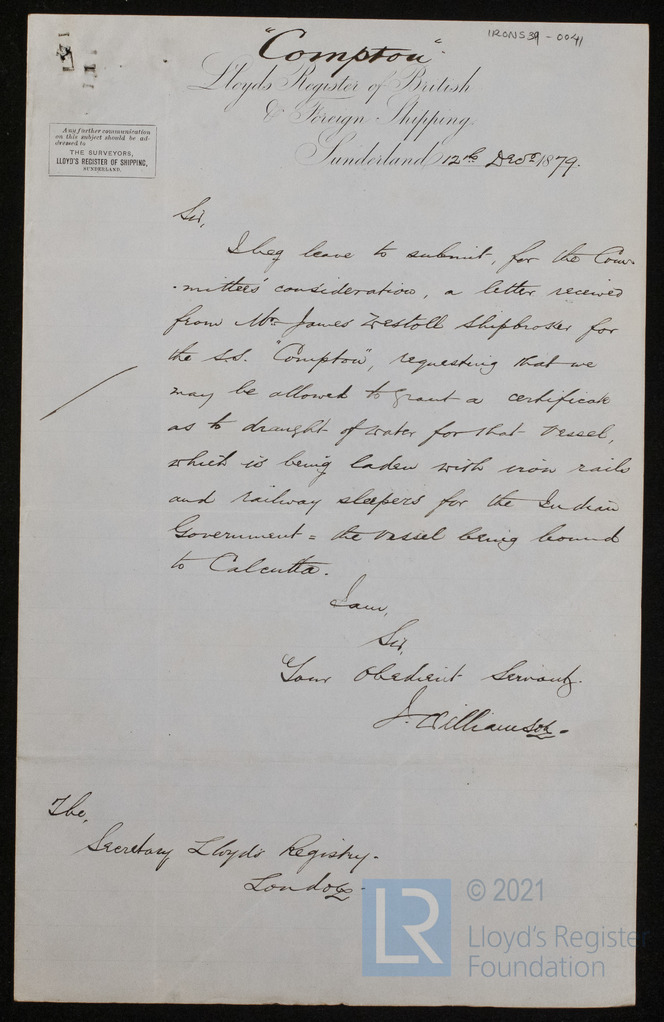 IRONS39-0041
"Compton"
Lloyds Register of British
& Foreign Shipping.
Sunderland 12th Decr 1879.
Any further communication
on this subject should be ad-
dressed to
THE SURVEYORS,
LLOYD'S REGISTER OF SHIPPING,
SUNDERLAND.
Sir,
I beg leave to submit, for the Com-
-mittees' consideration, a letter received
from Mr James Westoll Shipbroker for
the s.s. "Compton", requesting that we
may be allowed to grant a certificate
as to draught of water for that vessel,
which is being laden with iron rails
and railway sleepers for the Indian
Government = the vessel being bound
to Calcutta.
I am,
Sir,
Your Obedient Servant,
J. Williamson.
The,
Secretary Lloyd's Registry.
London.
LR
© 2021
Lloyd's Register
Foundation